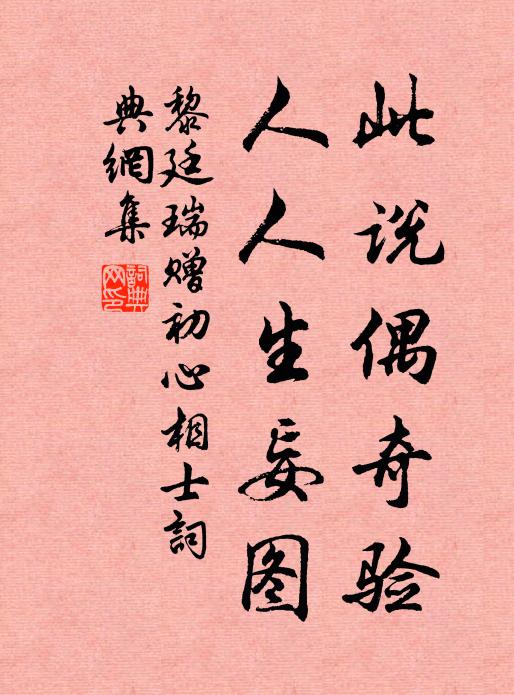 此说偶奇验
人人生妄图
黎廷瑞赠初心相士詞
典網集
詞典
网印